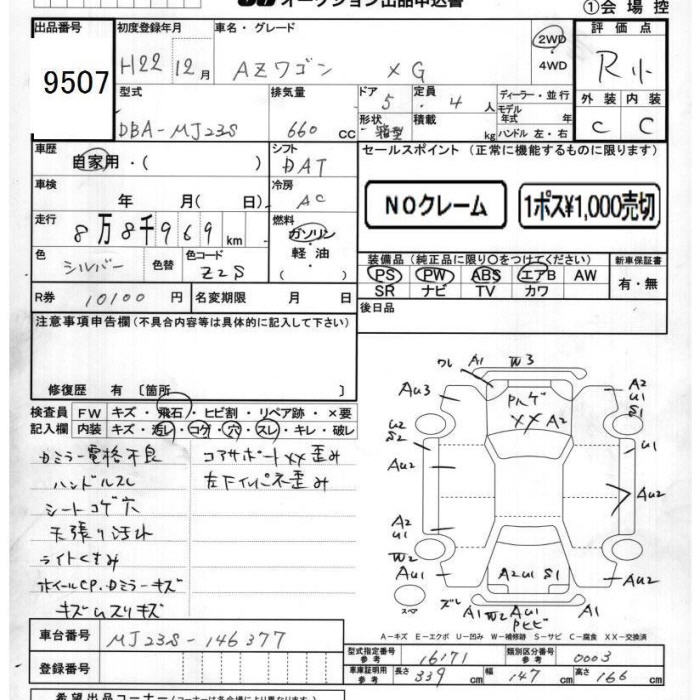 オークション出品申込書
①会場控
出品番号
9507
初度登録年月
H22 12月
車名・グレード
AZワゴン XG
2WD
・
4WD
評価点
R 小
外装 内装
C C
型式
DBA-MJ23S
排気量
660 CC
ドア
5
定員
4 人
形状
箱型
積載
kg
ディーラー・並行
モデル年式 年
ハンドル 左・右
車歴
自家用・( )
シフト
DAT
車検
年 月( 日)
冷房
AC
走行
8万8千969 km
燃料
ガソリン
軽油
( )
色
シルバー
色替
色コード
Z2S
R券 10100 円
名変期限 月 日
セールスポイント (正常に機能するものに限ります)
NOクレーム
1ポス¥1,000売切
装備品 (純正品に限り○をつけてください)
新車保証書
PS PW ABS エアB AW
SR ナビ TV カワ
有・無
後日品
注意事項申告欄 (不具合内容等は具体的に記入して下さい)
修復歴 有 〔箇所 〕
検査員 FW キズ・飛石・ヒビ割・リペア跡・×要
記入欄 内装 キズ・汚レ・コゲ・穴・スレ・キレ・破レ
Dミラー電格不良
ハンドルスレ
シートコゲ穴
天張り汚れ
ライトくすみ
ホイールCP.Dミラーキズ
キズUスリキズ
コアサポートXX歪み
左下インパネ歪み
ワレ A1 W3
Au3
Pハゲ
XX A2
A2
U1
S1
U2
S2
U1
Au2
Au2
A2
U1
W2
Au1
A2U1 S1
Au2
スペ
ズレ
A1 W2 Au1
Pヒビ
A1
A-キズ E-エクボ U-凹み W-補修跡 S-サビ C-腐食 XX-交換済
車台番号
MJ23S-146377
登録番号
型式指定番号
参考
16171
類別区分番号
参考
0003
車庫証明用
参考
長さ 339 cm
幅 147 cm
高さ 166 cm
希望出品コーナー (コーナーは各会場により異なります)